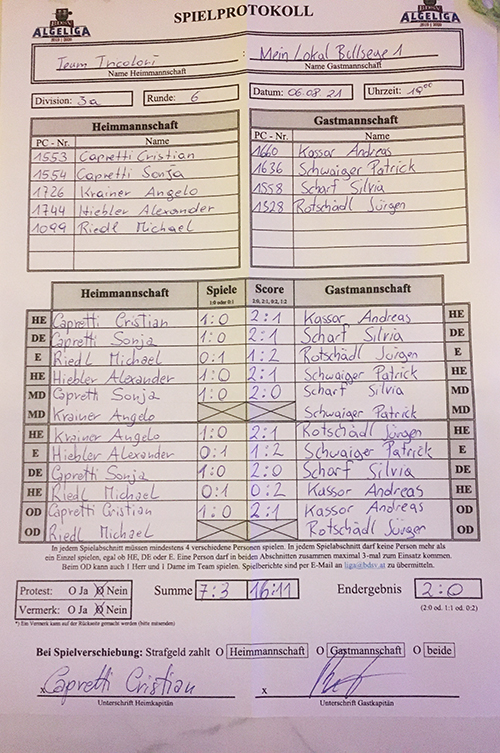 ALGELIGA
SPIELPROTOKOLL
ALGELIGA
Team Tricolori : Mein Lokal Bullseye 1
Name Heimmannschaft Name Gastmannschaft
Division: 3a Runde: 6 Datum: 06.08.21 Uhrzeit: 19⁰⁰
Heimmannschaft Gastmannschaft
PC - Nr. Name PC - Nr. Name
1553 Capretti Cristian 1660 Kassar Andreas
1554 Capretti Sonja 1636 Schwaiger Patrick
1726 Krainer Angelo 1558 Scharf Silvia
1744 Hiebler Alexander 1528 Rotschädl Jürgen
1099 Riedl Michael
Heimmannschaft Spiele Score Gastmannschaft
1:0 oder 0:1 2:0, 2:1, 0:2, 1:2
HE Capretti Cristian 1:0 2:1 Kassar Andreas HE
DE Capretti Sonja 1:0 2:1 Scharf Silvia DE
E Riedl Michael 0:1 1:2 Rotschädl Jürgen E
HE Hiebler Alexander 1:0 2:1 Schwaiger Patrick HE
MD Capretti Sonja 1:0 2:0 Scharf Silvia MD
MD Krainer Angelo Schwaiger Patrick MD
HE Krainer Angelo 1:0 2:1 Rotschädl Jürgen HE
E Hiebler Alexander 0:1 1:2 Schwaiger Patrick E
DE Capretti Sonja 1:0 2:0 Scharf Silvia DE
HE Riedl Michael 0:1 0:2 Kassar Andreas HE
OD Capretti Cristian 1:0 2:1 Kassar Andreas OD
OD Riedl Michael Rotschädl Jürgen OD
In jedem Spielabschnitt müssen mindestens 4 verschiedene Personen spielen. In jedem Spielabschnitt darf keine Person mehr als
ein Einzel spielen, egal ob HE, DE oder E. Eine Person darf in beiden Abschnitten zusammen maximal 3-mal zum Einsatz kommen.
Beim OD kann auch 1 Herr und 1 Dame im Team spielen. Spielberichte sind per E-Mail an liga@bdsv.at zu übermitteln.
Protest: O Ja O Nein Summe 7:3 16:11 Endergebnis 2:0
Vermerk: O Ja O Nein (2:0 od. 1:1 od. 0:2)
*) Ein Vermerk kann auf der Rückseite gemacht werden (bitte entsenden)
Bei Spielverschiebung: Strafgeld zahlt O Heimmannschaft O Gastmannschaft O beide
x Capretti Cristian x
Unterschrift Heimkapitän Unterschrift Gastkapitän